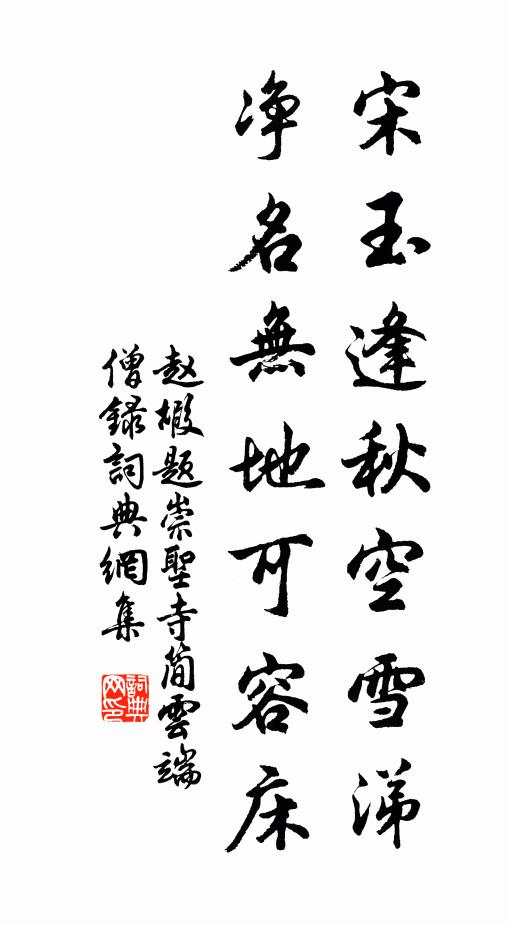 宋玉逢秋空雪涕
净名無地可容床
赵嘏题崇聖寺简雲端
僧録詞典網集
詞典网印